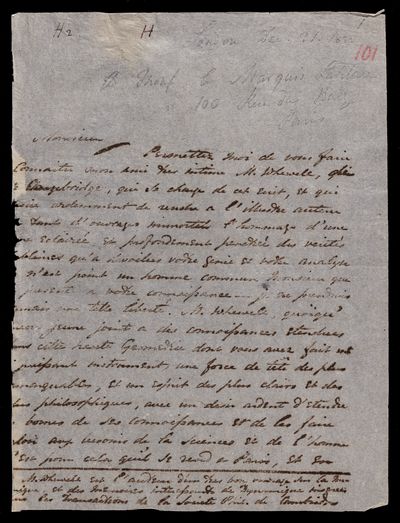 H2 H 1
London Dec. 21.
101
A Mons. le Marquis
100 Rue du Bac
Paris
Monsieur
Permettez moi de vous faire
Connaitre mon ami très intime M. Whewell, de
Cambridge, qui se charge de cet ecrit, et qui
ardemment de rendre a l'Illustre auteur
tants d'ouvrages immortels l'hommage d'une
eclairée et profondement penetrée des verités
qu'a devoilées votre genie et votre analyse
n'est point un homme commun Monsieur que
presente a votre connaissance — je ne prendrais
mais une telle liberté. M. Whewell quoique
jeune joint a des connoissances etendues
cette haute Geometrie dont vous avez fait un
puissant instrument, une force de tête des plus
remarquables, et un esprit des plus clairs et des
plus philosophiques, avec un desir ardent d'etendre
bornes de ses connoissances et de les faire
aux besoins de la Science et de l'homme
C'est pour cela qu'il se rend a Paris, et en
M. Whewell est l'auteur d'un très bon ouvrage sur la
et des memoires de Dynamique
les Transactions de la Societé Phil. de Cambridge